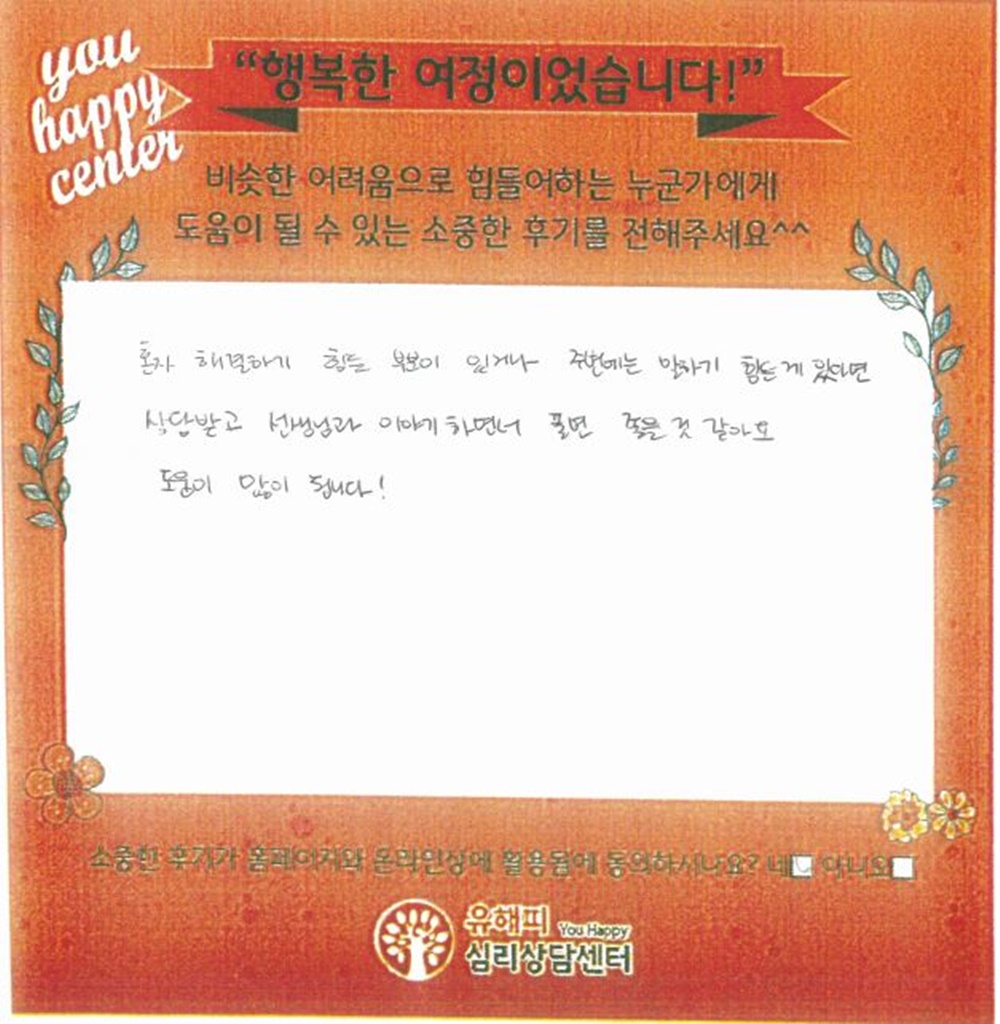 you
happy
center
“행복한 여정이었습니다!”
비슷한 어려움으로 힘들어하는 누군가에게
도움이 될 수 있는 소중한 후기를 전해주세요^^
혼자 해결하기 힘든 부분이 있거나 주변에는 말하기 힘든게 있다면
상담받고 선생님과 이야기하면서 풀면 좋을것 같아요
도움이 많이 됩니다!
소중한 후기가 홈페이지와 온라인상에 활용됨에 동의하시나요? 네 아니오
유해피 You Happy
심리상담센터